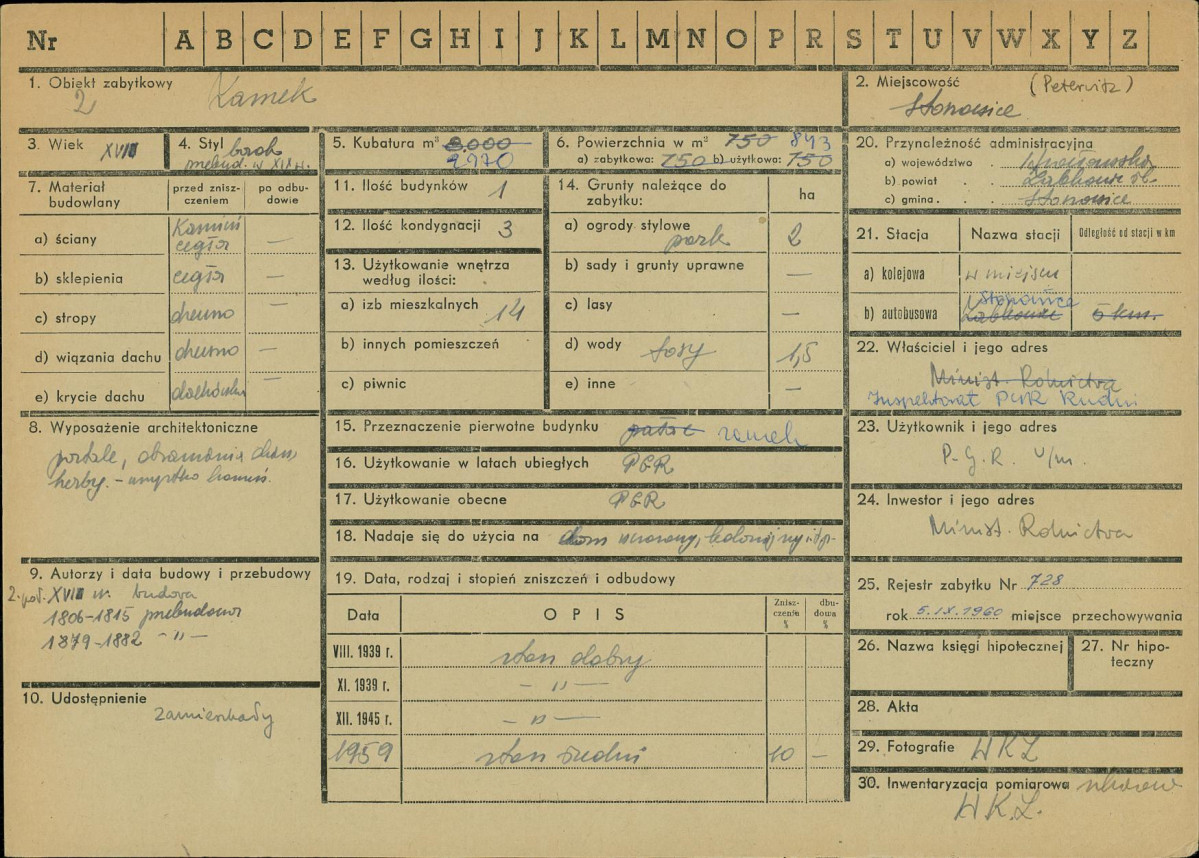 Nr A B C D E F G H I J K L M N O P R S T U V W X Y Z
1. Obiekt zabytkowy
2 Zamek
2. Miejscowość (Peterwitz)
Stoszowice
3. Wiek XVIII
4. Styl barok
przebud. w XIX w.
5. Kubatura m³ 8.000
2970
6. Powierzchnia w m² 750 843
a) zabytkowa: 750 b) użytkowa: 750
20. Przynależność administracyjna
a) województwo . Wrocławskie
b) powiat . . Ząbkowice Śl.
c) gmina . . Stoszowice
7. Materiał budowlany
przed zniszczeniem
po odbudowie
a) ściany Kamień
cegła —
b) sklepienia cegła —
c) stropy drewno —
d) wiązania dachu drewno —
e) krycie dachu dachówka —
11. Ilość budynków 1
12. Ilość kondygnacji 3
13. Użytkowanie wnętrza
według ilości:
a) izb mieszkalnych 14
b) innych pomieszczeń
c) piwnic
14. Grunty należące do
zabytku:
ha
a) ogrody stylowe park 2
b) sady i grunty uprawne —
c) lasy —
d) wody fosy 1,5
e) inne —
21. Stacja Nazwa stacji Odległość od stacji w km
a) kolejowa w miejscu
Stoszowice
b) autobusowa Ząbkowice 5 km.
22. Właściciel i jego adres
Minist. Rolnictwa
Inspektorat PGR
8. Wyposażenie architektoniczne
portale, obramienia okien,
herby. – wszystko kamień.
15. Przeznaczenie pierwotne budynku pałac zamek
16. Użytkowanie w latach ubiegłych PGR
17. Użytkowanie obecne PGR
18. Nadaje się do użycia na dom kolonijny itp.
23. Użytkownik i jego adres
P.G.R. w/m.
24. Inwestor i jego adres
Minist. Rolnictwa
9. Autorzy i data budowy i przebudowy
2. poł. XVIII w. budowa
1806–1815 przebudowa
1879–1882 – " –
10. Udostępnienie
zamieszkały
19. Data, rodzaj i stopień zniszczeń i odbudowy
Data OPIS Zniszczenie % dbudowa %
VIII. 1939 r. stan dobry
XI. 1939 r. – " –
XII. 1945 r. – " –
1959 stan średni 10 –
25. Rejestr zabytku Nr 728
rok 5.IX.1960 miejsce przechowywania
26. Nazwa księgi hipotecznej
27. Nr hipoteczny
28. Akta
29. Fotografie WKZ
30. Inwentaryzacja pomiarowa
W.K.Z.